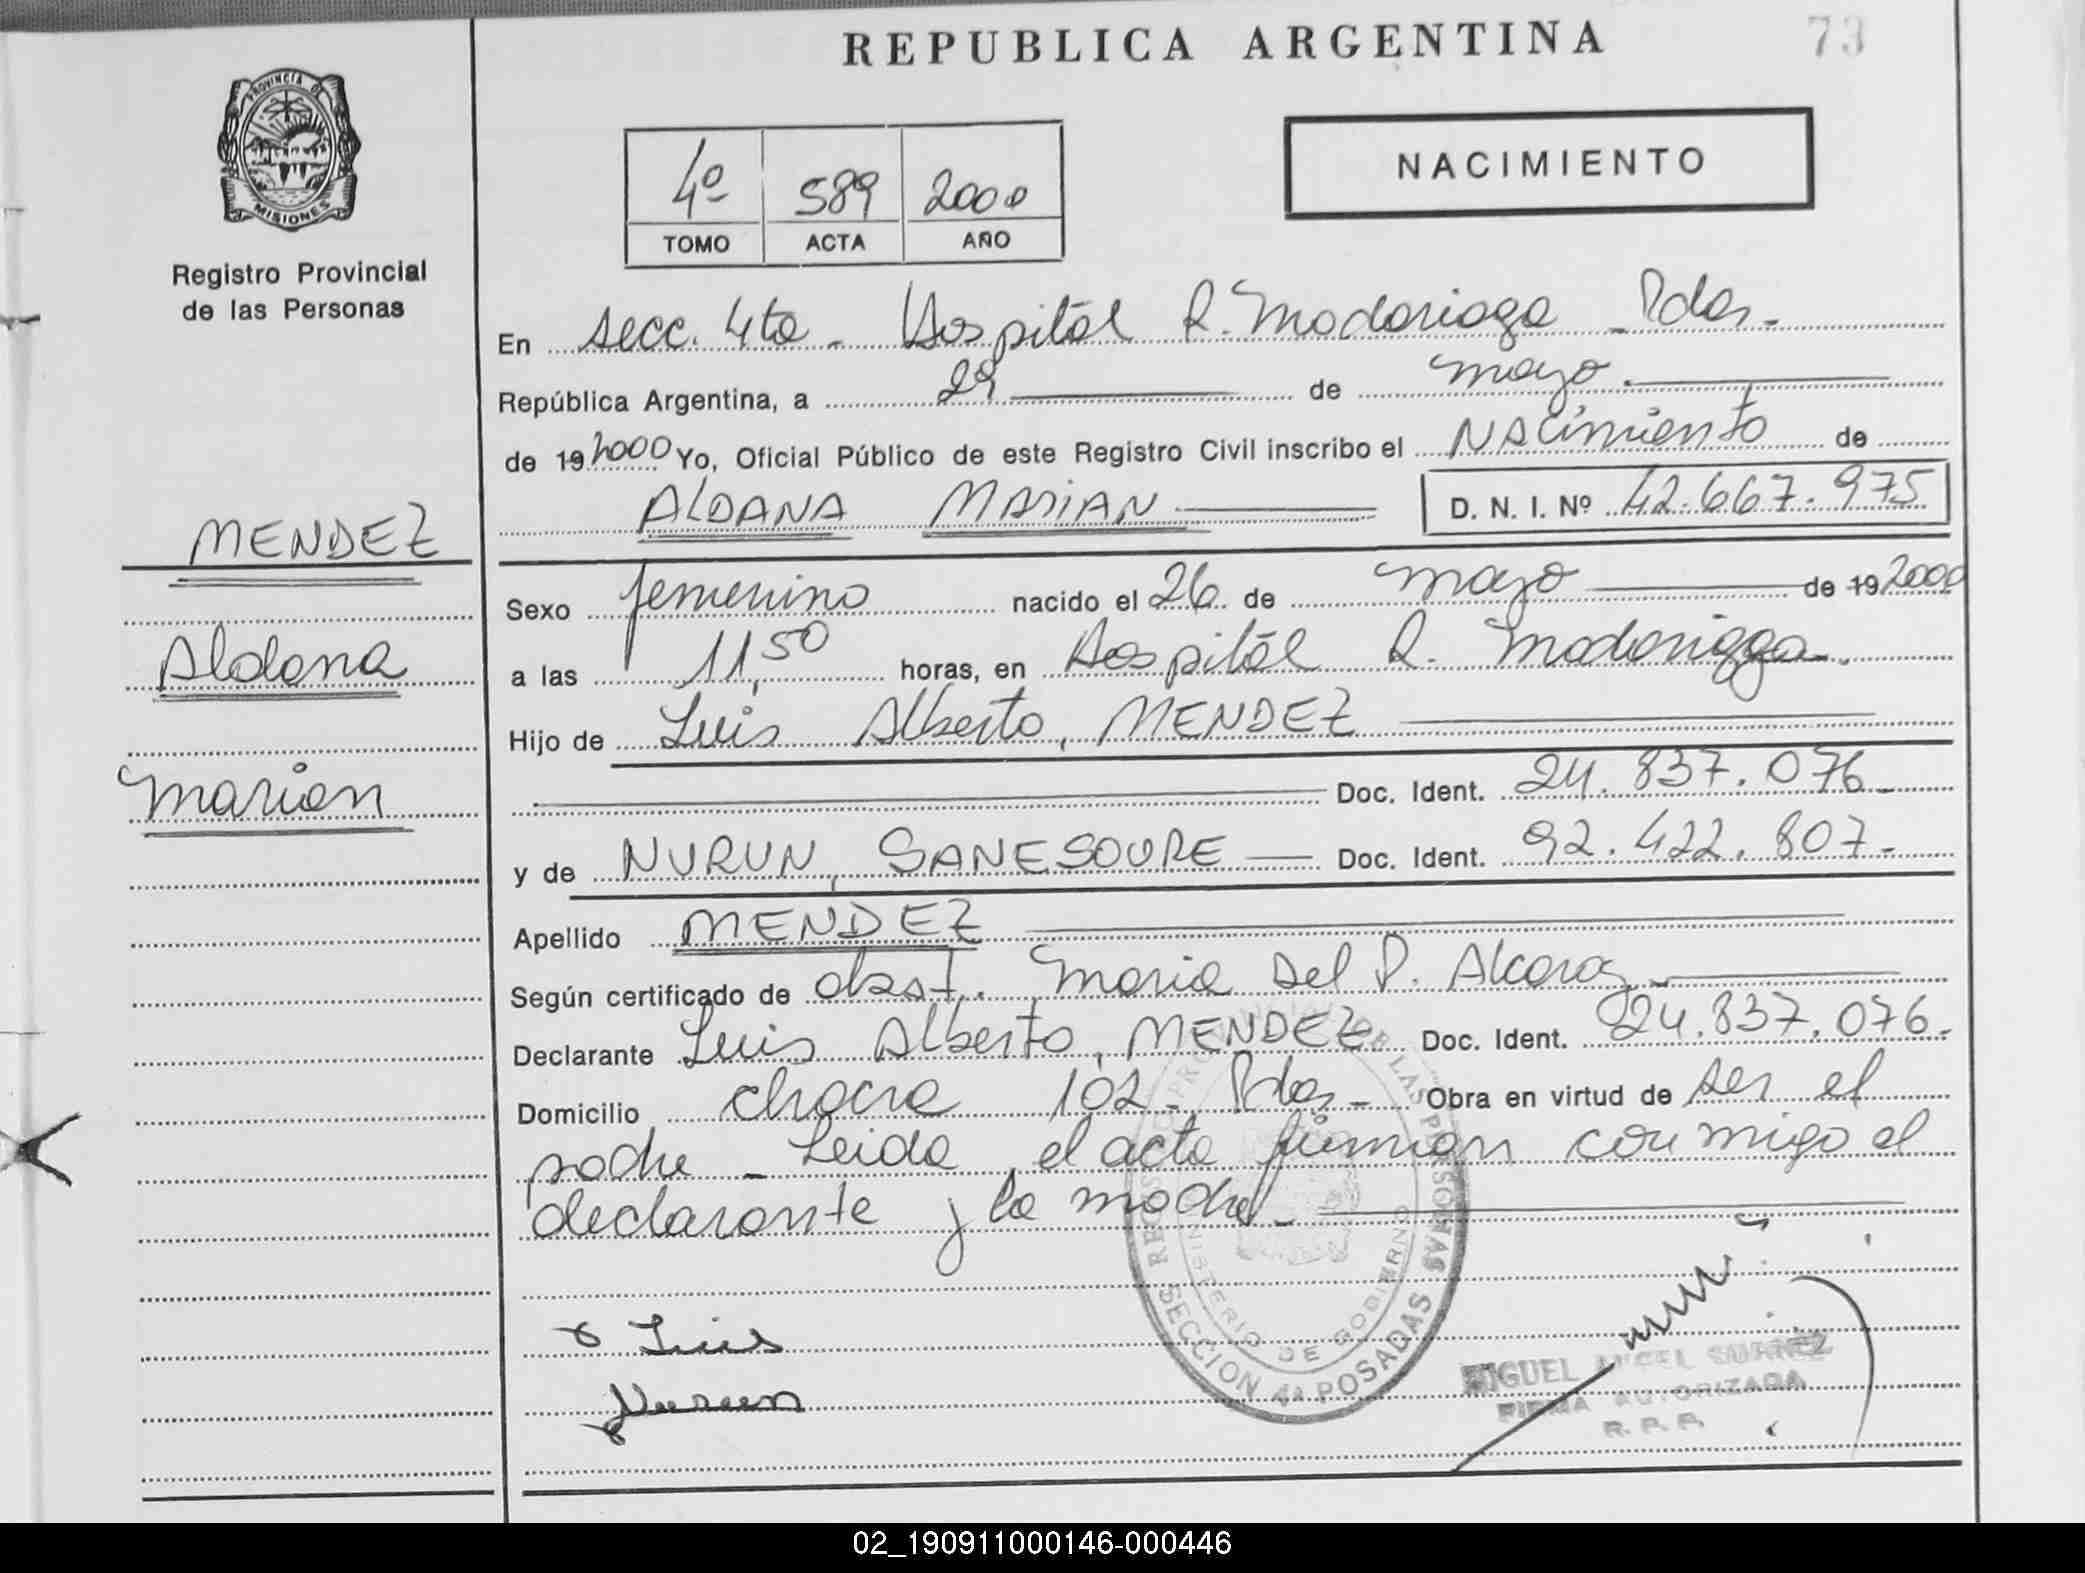 REPUBLICA ARGENTINA
73
PROVINCIA DE
MISIONES
Registro Provincial
de las Personas
4º 589 2000
TOMO ACTA AÑO
NACIMIENTO
En secc. 4ta - Hospital R. Madariaga - Pdas.-
República Argentina, a 29 de mayo
de 19 2000 Yo, Oficial Público de este Registro Civil inscribo el NACimiento de
ALDANA MARIAN D. N. I. Nº 42.667.975
MENDEZ
Aldana
Marian
Sexo femenino nacido el 26 de mayo de 19 2000
a las 11,50 horas, en Hospital R. Madariaga.
Hijo de Luis Alberto, MENDEZ
Doc. Ident. 24.837.076-
y de NURUN, SANESOURE Doc. Ident. 92.422.807-
Apellido MENDEZ
Según certificado de obst. Maria Del P. Alcaraz-
Declarante Luis Alberto, MENDEZ Doc. Ident. 24.837.076-
Domicilio chacra 102- Pdas- Obra en virtud de ser el
padre - Leida el acta firman conmigo el
declarante y la madre-
Luis
REGISTRO PROVINCIAL DE LAS PERSONAS
MINISTERIO DE GOBIERNO
SECCION 4ª POSADAS
MIGUEL ANGEL SUAREZ
FIRMA AUTORIZADA
R. P. P.
02_190911000146-000446